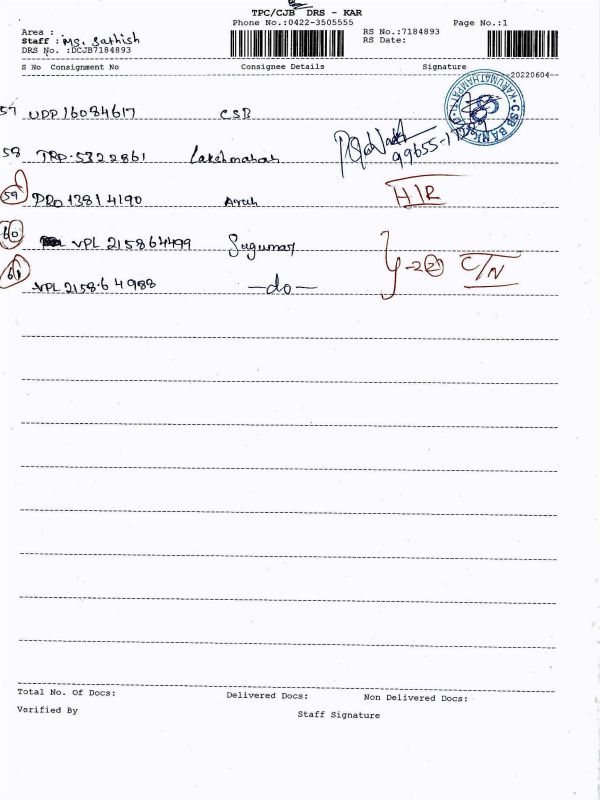 TPC/CJB DRS - KAR
Phone No.:0422-3505555
Page No.:1
Area :
Staff : Ms. Sathish
DRS No. :DCJB7184893
RS No.:7184893
RS Date:
S No Consignment No Consignee Details Signature
20220604
57 UDP 16084617 CSB
CSB BANK
KARUMATHAMPATTI
58 TRP.5322861 Lakshmanan
99655-1
59 PRO 13814190 Arun H/R
60 VPL 215864499 Sugumar
61 VPL 215864988 —do— C/N
Total No. Of Docs: Delivered Docs: Non Delivered Docs:
Verified By Staff Signature